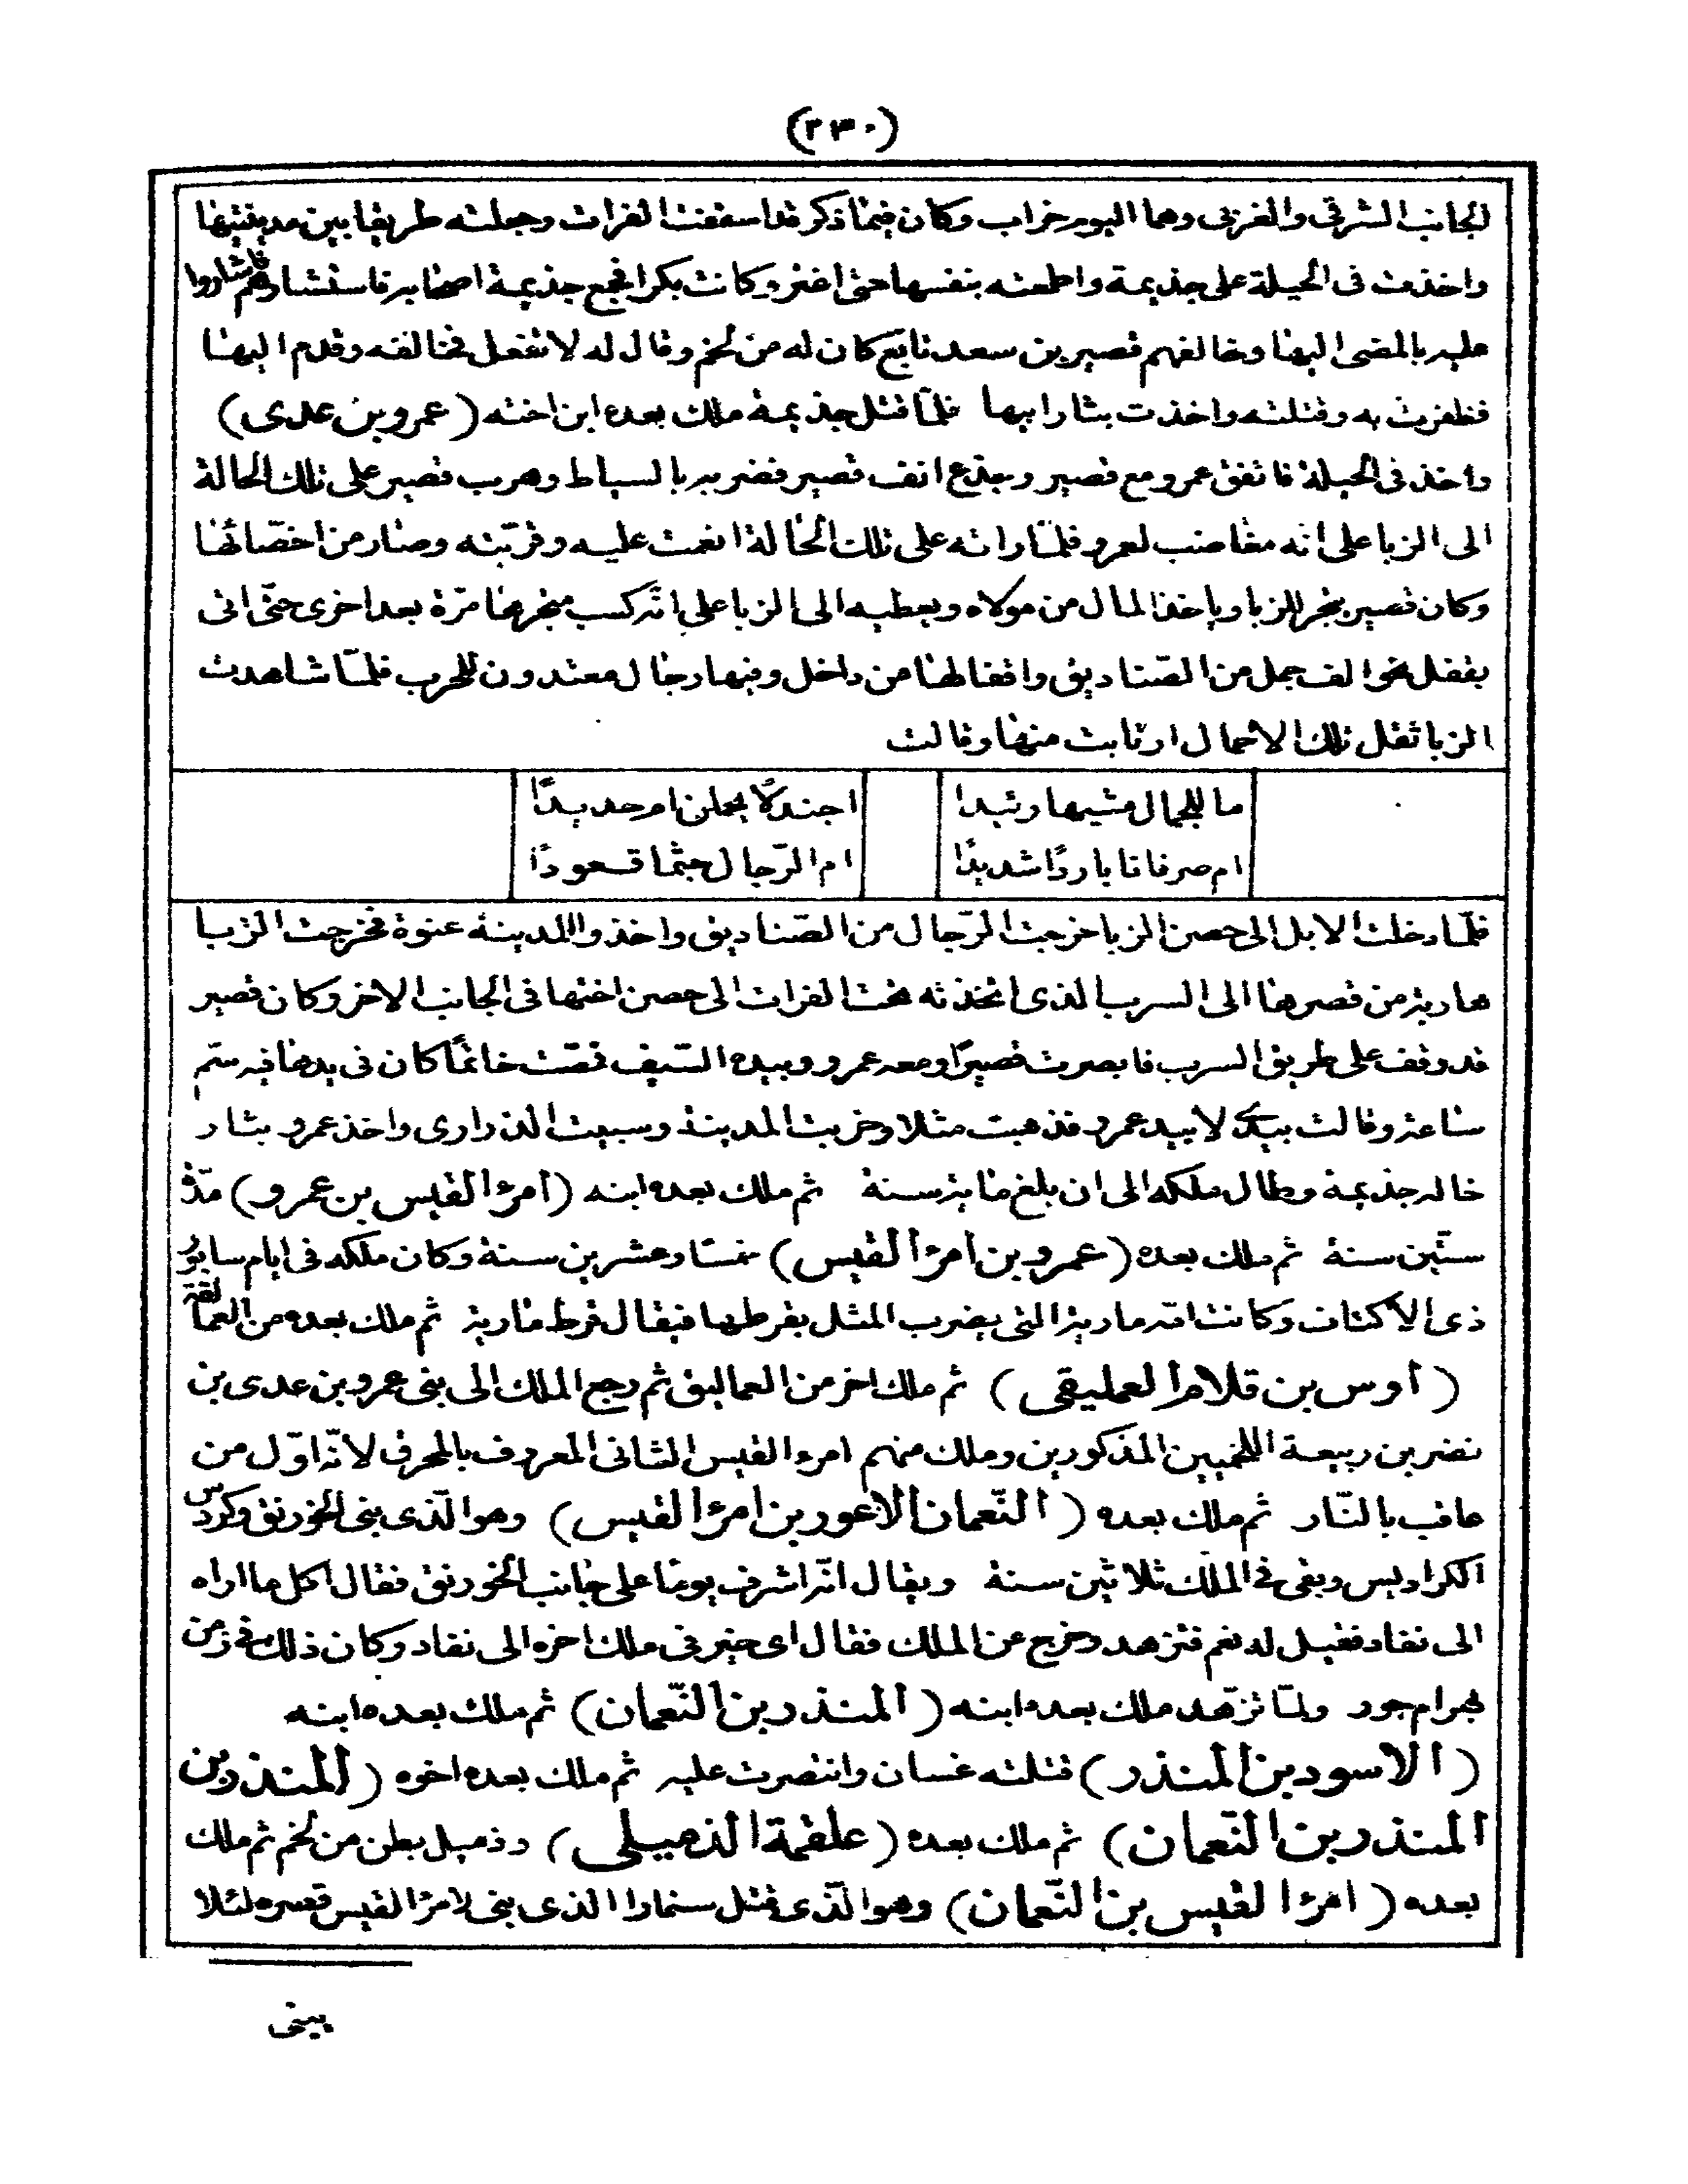 (٢٣٠)
الجانب الشرقى والغربى وهما اليوم خراب وكان فيما ذكر قد اسقفت الفرات وجعلته طريقا بين مدينتيها
واخذت فى الحيلة على جذيمة واطمعته بنفسها حتى اغتر وكانت بكرا فجمع جذيمة اصحابه فاستشارهم فاشاروا
عليه بالمضى اليها وخالفهم قصير بن سعد تابع كان له من لخم وقال له لا تفعل فخالفه وقدم اليها
فظفرت به وقتلته واخذت بثار ابيها فلما قتل جذيمة ملك بعده ابن اخته (عمرو بن عدى)
واخذ فى الحيلة فاتفق عمرو مع قصير وجذع انف قصير فضربه بالسياط وهرب قصير على تلك الحالة
الى الزبا على انه مغاضب لعمرو فلما راته على تلك الحالة انعمت عليه وقربته وصار من اخصائها
وكان قصير يتجر للزبا وياخذ المال من مولاه ويعطيه الى الزبا على انه كسب متجرها مرة بعد اخرى حتى اتى
بقفل نحو الف جمل من الصناديق واقفالها من داخل وفيها رجال معتدون للحرب فلما شاهدت
الزبا ثقل تلك الاحمال ارتابت منها وقالت
ما للجمال مشيها وئيدا اجندلا يحملن ام حديدا
ام صرفانا باردا شديدا ام الرجال جثما قعودا
فلما دخلت الابل الى حصن الزبا خرجت الرجال من الصناديق واخذوا المدينة عنوة فخرجت الزبا
هاربة من قصرها الى السرب الذى اتخذته تحت الفرات الى حصن اختها فى الجانب الاخر وكان قصير
قد وقف على طريق السرب فابصرت قصيرا ومعه عمرو وبيده السيف فمصت خاتما كان فى يدها فيه سم
ساعة وقالت بيدى لا بيد عمرو فذهبت مثلا وخربت المدينة وسبيت الذرارى واخذ عمرو بثار
خاله جذيمة وطال ملكه الى ان بلغ ماية سنة ثم ملك بعده ابنه (امرؤ القيس بن عمرو) مدة
ستين سنة ثم ملك بعده (عمرو بن امرؤ القيس) خمسا وعشرين سنة وكان ملكه فى ايام سابور
ذى الاكتاف وكانت امه مارية التى يضرب المثل بقرطها فيقال قرط مارية ثم ملك بعده من العمالقة
(اوس بن قلام العمليقى) ثم ملك اخر من العماليق ثم رجع الملك الى بنى عمرو بن عدى بن
نضر بن ربيعة اللخميين المذكورين وملك منهم امرء القيس الثانى المعروف بالمحرق لانه اول من
عاقب بالنار ثم ملك بعده (النعمان الاعور بن امرؤ القيس) وهو الذى بنى الخورنق وكردس
الكراديس وبقى فى الملك ثلاثين سنة ويقال انه اشرف يوما على جانب الخورنق فقال اكل ما اراه
الى نفاد فقيل له نعم فتزهد وخرج عن الملك فقال اى خير فى ملك اخره الى نفاد وكان ذلك فى زمن
بهرام جور ولما تزهد ملك بعده ابنه (المنذر بن النعمان) ثم ملك بعده ابنه
(الاسود بن المنذر) قتلته غسان وانتصرت عليه ثم ملك بعده اخوه (المنذر بن
المنذر بن النعمان) ثم ملك بعده (علقمة الذميلى) وذميل بطن من لخم ثم ملك
بعده (امرؤ القيس بن النعمان) وهو الذى قتل سنمارا الذى بنى لامرؤ القيس قصره لئلا
يبنى